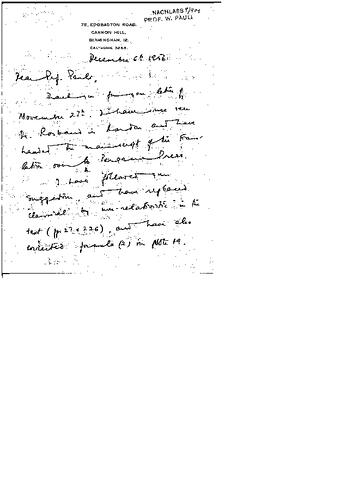 NACHLASS
PROF. W. PAULI
75, EDGBASTON ROAD,
CANNON HILL,
BIRMINGHAM, 12.
CALTHORPE
December 6th 1956.
Dear Prof. Pauli,
Thank you for your letter of
November 27th. I have since seen
Dr. Rosbaud in London and have
handed the manuscript of the trans-
lation over to Pergamon Press.
I have followed your
suggestion, and have replaced
classical by non-relativistic in the
text (pp and 226), and have also
corrected formula (2) in Note 19.